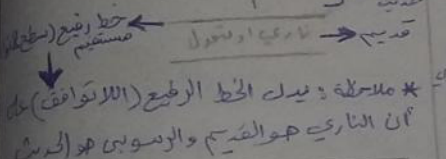 خط رفيع (سطح
مستقيم
قديم ← ناري او متحول
* ملاحظة : يدل الخط الرفيع (اللاتوافق) على
أن الناري هو القديم والرسوبي هو الحديث